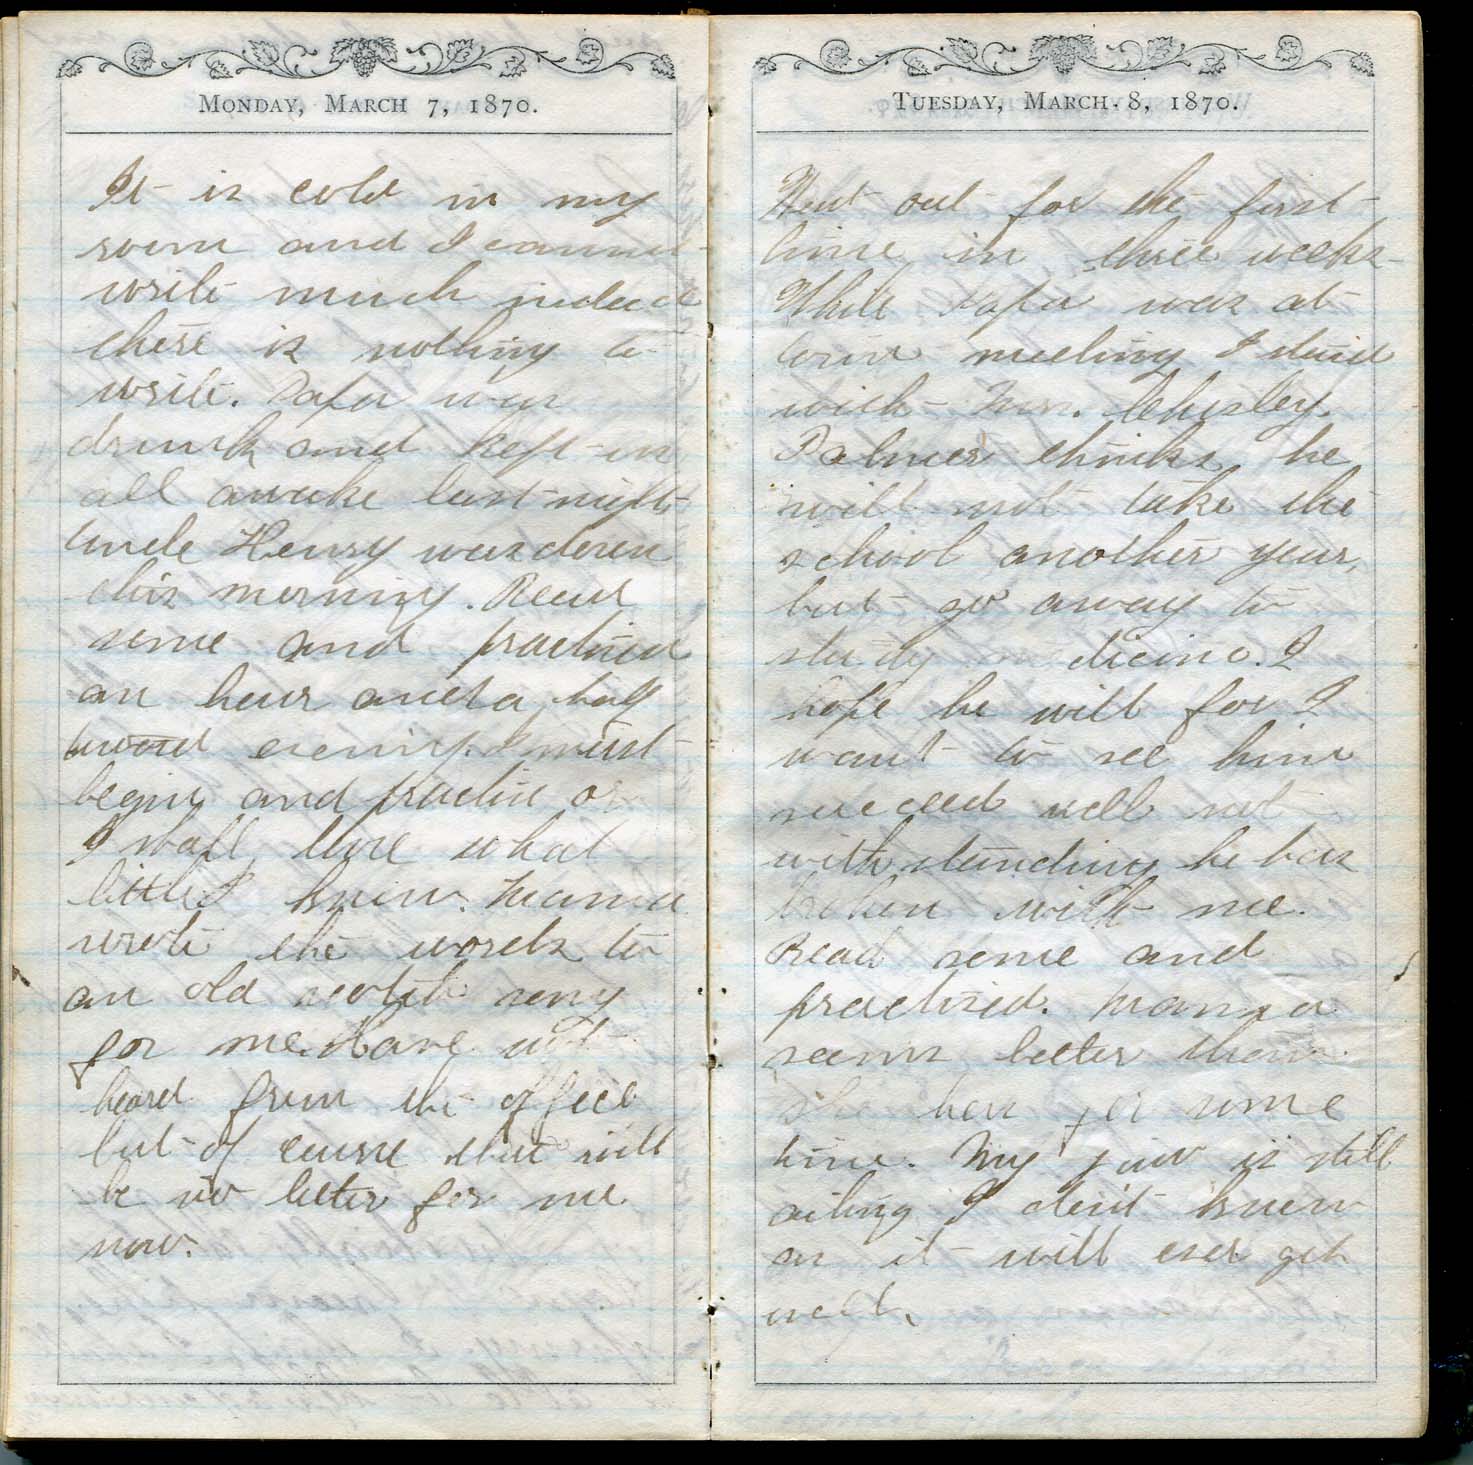 MONDAY, MARCH 7, 1870.
It is cold in my
room and I cannot
write much indeed
there is nothing to
write. Papa was
drunk and kept us
all awake last night
Uncle Henry was down
this morning. Read
some and practised
an hour and a half
toward evening. I must
begin and practise or
I shall lose what
little I know. Mama
wrote the words to
an old scotch song
for me. Have not
heard from the office
but of course that will
be no letter for me
now.
TUESDAY, MARCH 8, 1870.
Went out for the first
time in three weeks
While Papa was at
town meeting I staid
with Mrs. Chesley.
Palmer thinks he
will not take the
school another year,
but go away to
study medicine. I
hope he will for I
want to see him
succeed well not
withstanding he has
broken with me.
Read some and
practised. Mama
seems better than
she has for some
time. My jaw is still
ailing I don't know
as it will ever get
well.